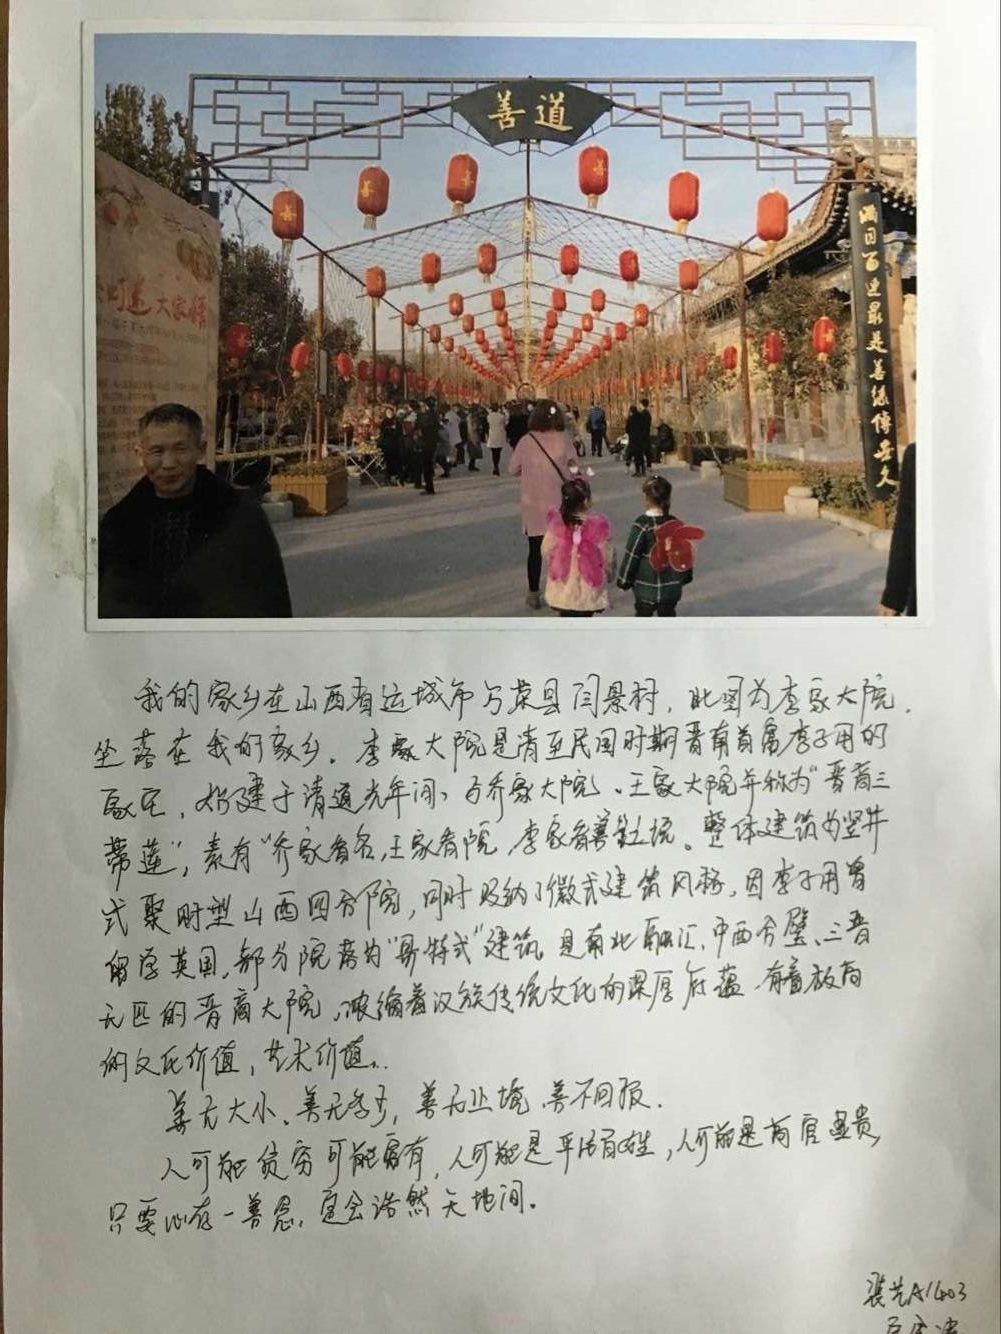 善道
善
善
善
善
大家
满目百进景是善缘传要久
我的家乡在山西省运城市万荣县闫景村，此图为李家大院，
坐落在我的家乡。李家大院是清至民国时期晋南首富李子用的
家宅，始建于清道光年间，与乔家大院、王家大院并称为“晋商三
蒂莲”，素有“乔家看名，王家看院，李家看善”之说。整体建筑为竖井
式聚财型山西四合院，同时吸纳了徽式建筑风格，因李子用曾
留学英国，部分院落为“哥特式”建筑，是南北融汇、中西合璧、三晋
无匹的晋商大院，浓缩着汉族传统文化的深厚底蕴，有着极高
的文化价值，艺术价值。
善无大小、善无多少，善无止境，善不图报.
人可能贫穷可能富有，人可能是平活百姓，人可能是高官显贵，
只要心存一善念，定会浩然天地间。
装艺A1403